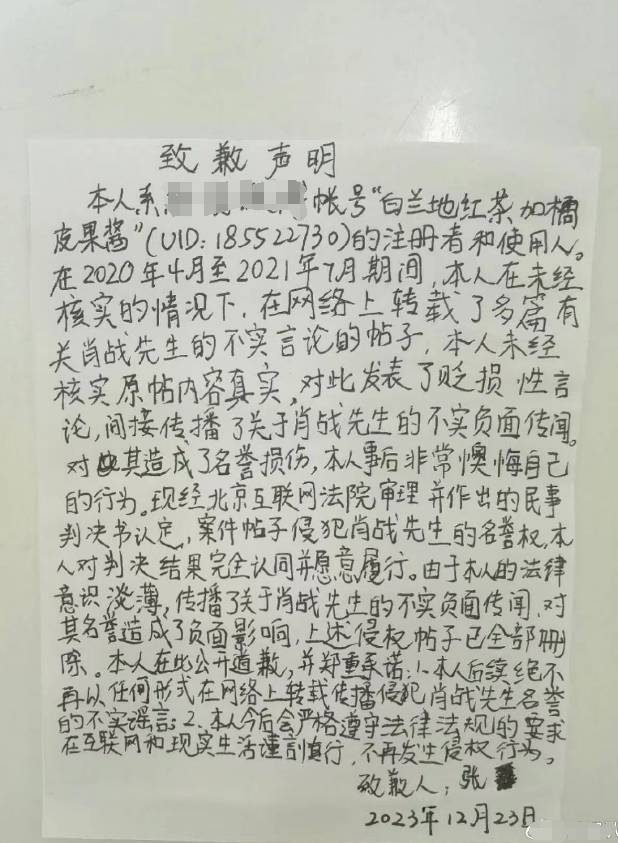 致歉声明
本人系 帐号"白兰地红茶加橘
皮果酱"(UID:185522730)的注册者和使用人。
在2020年4月至2021年7月期间,本人在未经
核实的情况下.在网络上转载了多篇有
关肖战先生的不实言论的帖子,本人未经
核实原帖内容真实,对此发表了贬损性言
论,间接传播了关于肖战先生的不实负面传闻。
对其造成了名誉损伤,本人事后非常懊悔自己
的行为。现经北京互联网法院审理并作出的民事
判决书认定,案件帖子侵犯肖战先生的名誉权,本
人对判决结果完全认同并愿意履行。由于本人的法律
意识淡薄,传播了关于肖战先生的不实负面传闻、对
其名誉造成了负面影响,上述侵权帖子已全部删
除。本人在此公开道歉,并郑重承诺:1.本人后续绝不
再以任何形式在网络上转载传播侵犯肖战先生名誉
的不实谣言;2、本人今后会严格遵守法律法规的要求
在互联网和现实生活谨言慎行,不再发生侵权行为。
致歉人:张
2023年12月23日